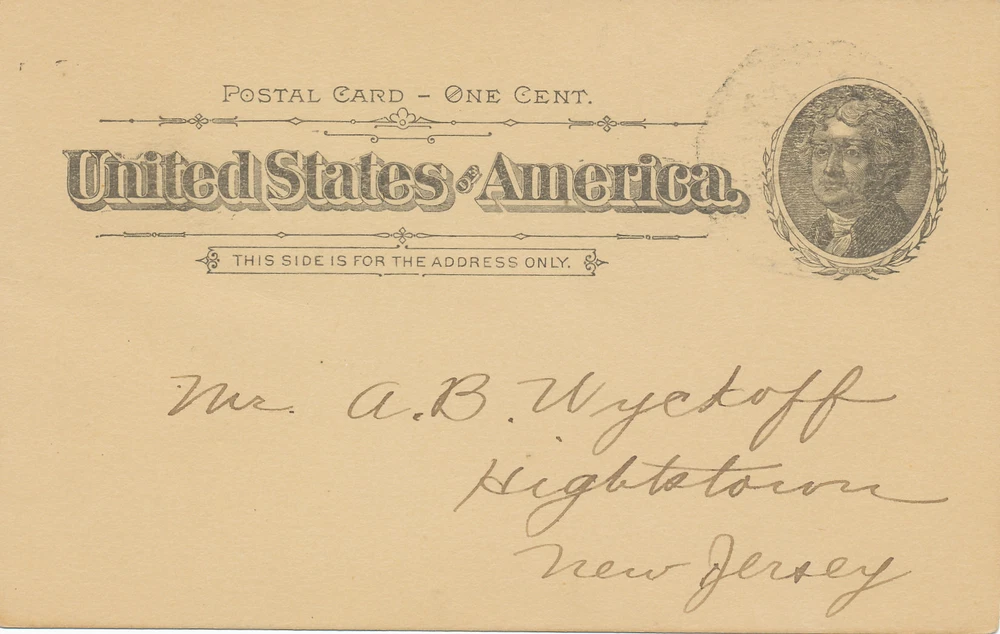 POSTAL CARD - ONE CENT.
United States OF America.
THIS SIDE IS FOR THE ADDRESS ONLY.
JEFFERSON
Mr. A. B. Wyckoff
Hightstown
New Jersey